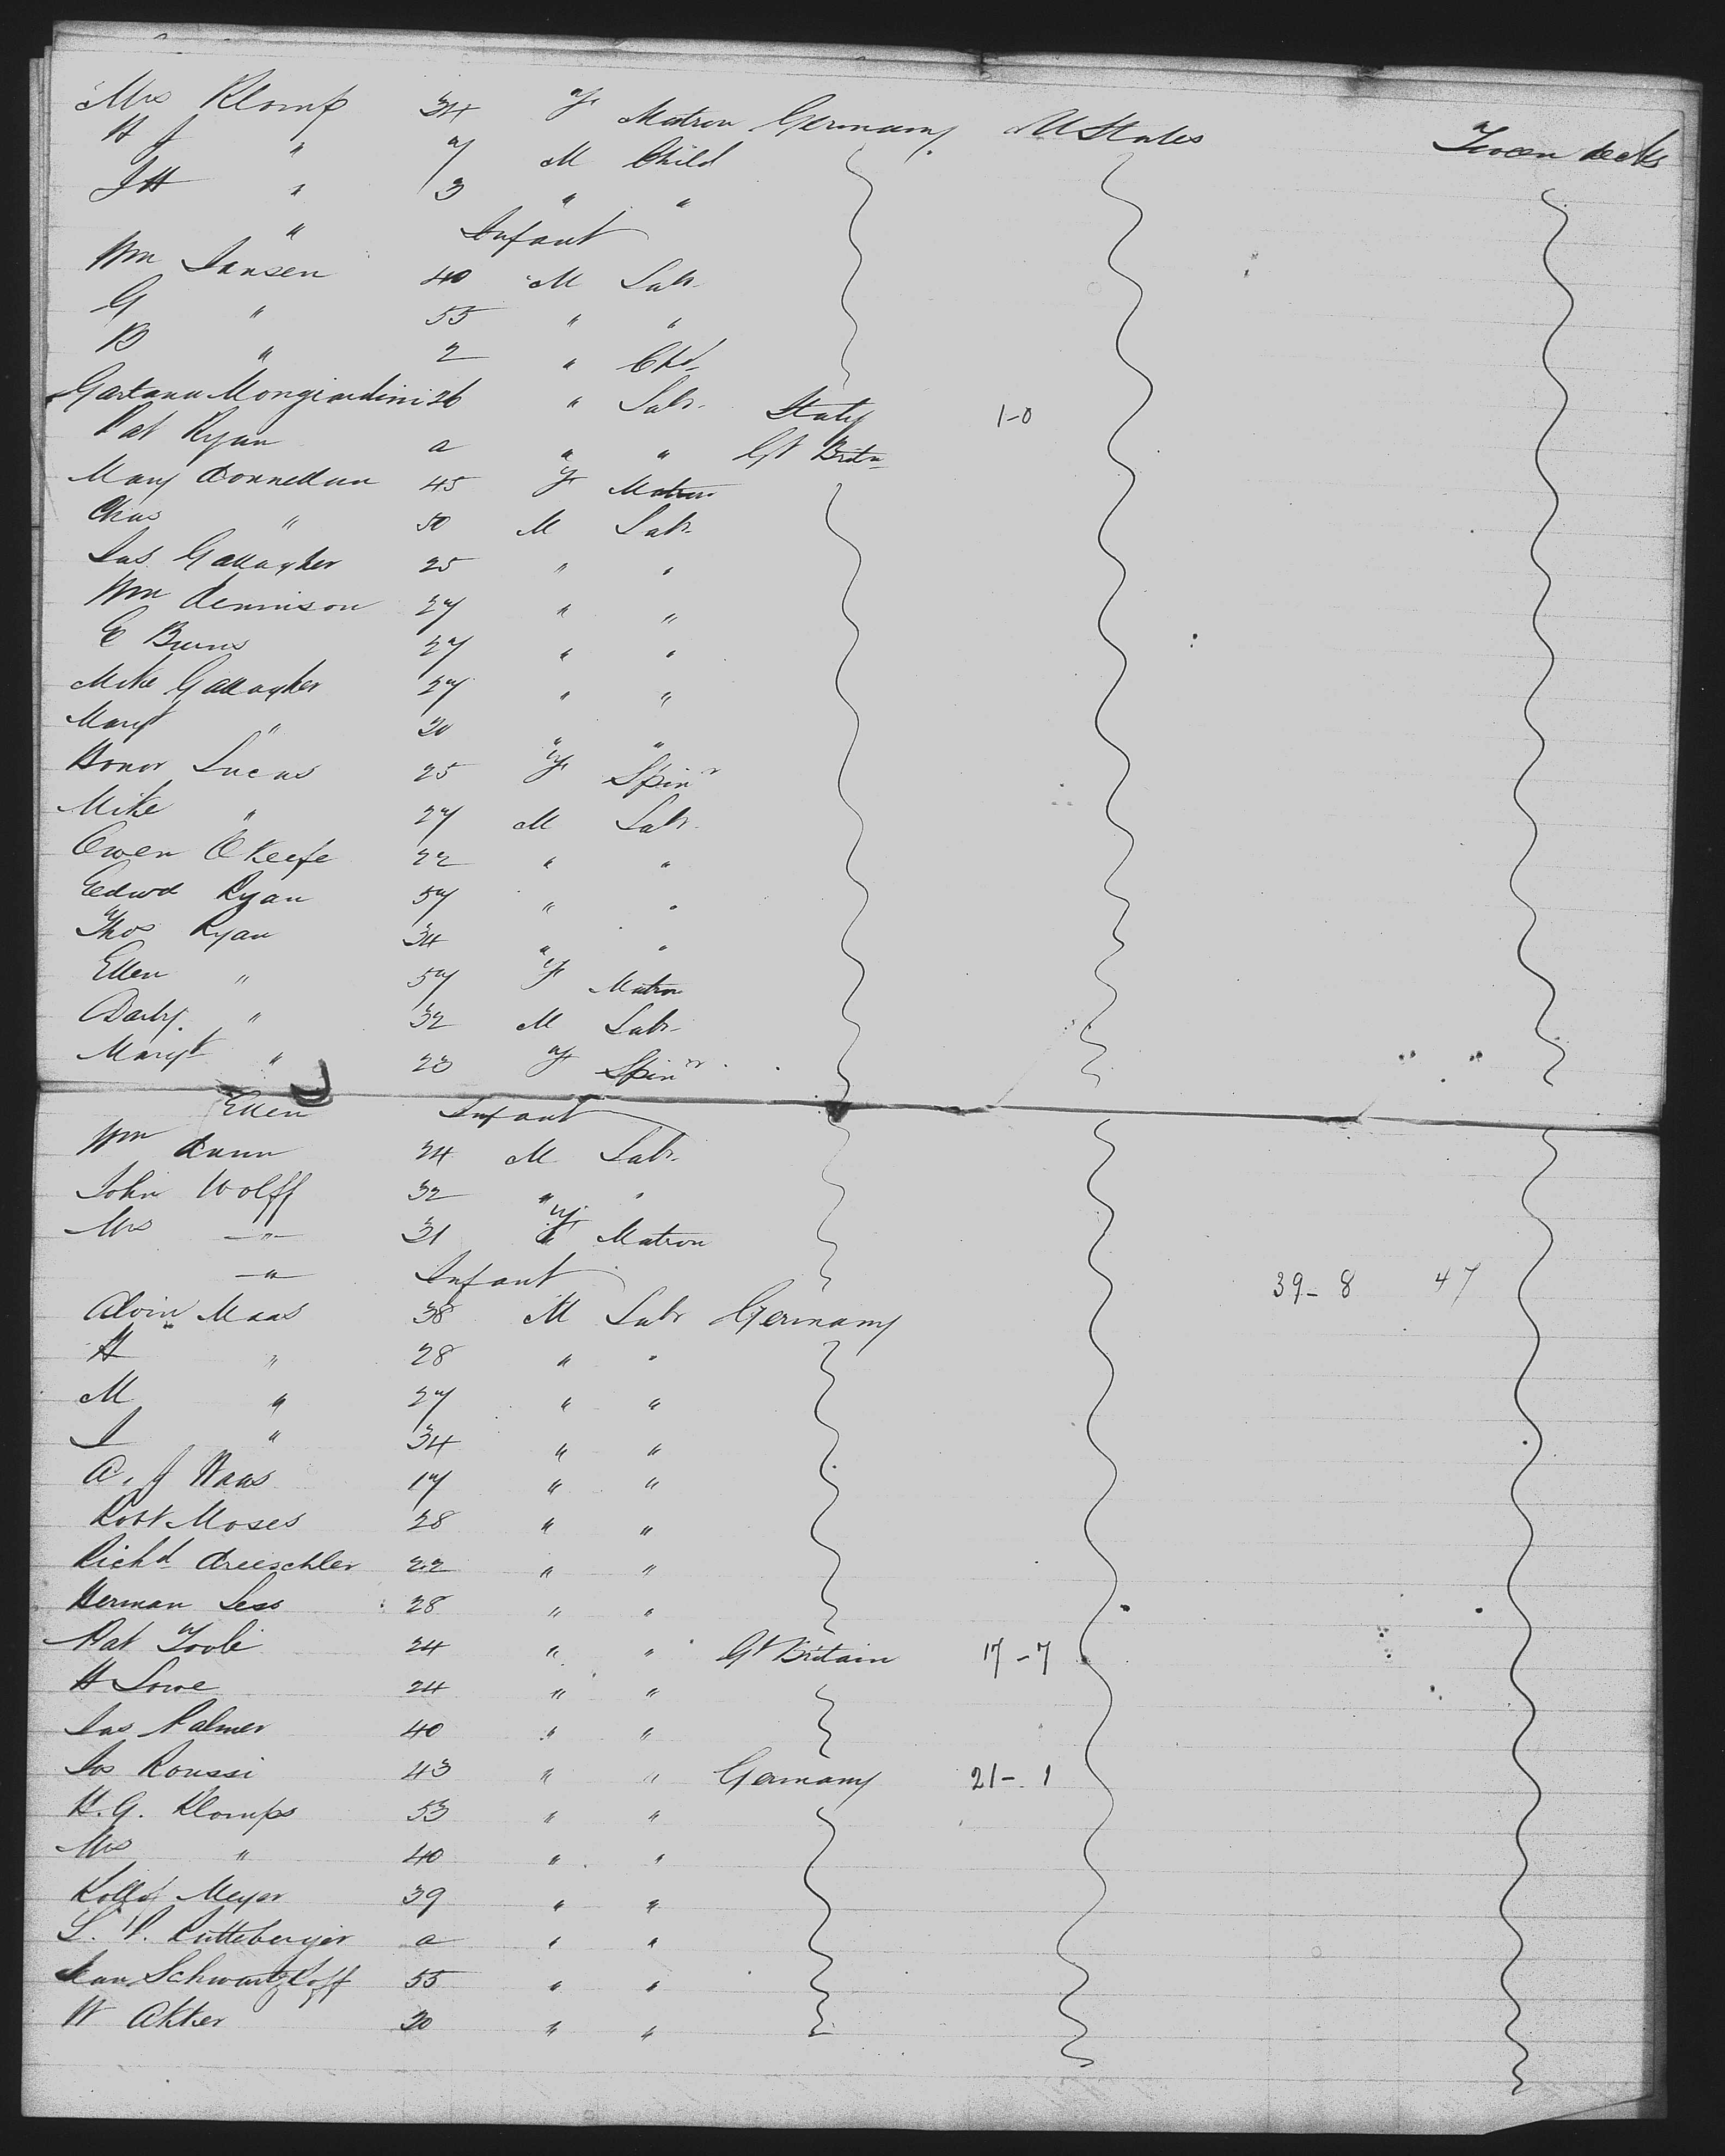 Mrs Klomp 34 F Matron Germany U States Tween decks
H J " 7 M Child
J H " 3 " "
" Infant
Wm Jansen 40 M Labr
G " 55 " "
B " 2 " Chd
Gartana Mongiardini 26 " Labr Italy 1-0
Pat Ryan a " " Gt Britn
Mary Donnellan 45 F Matron
Chas " 50 M Labr
Jas Gallagher 25 " "
Wm Dennison 27 " "
C Burns 27 " "
Mike Gallagher 27 " "
Margt " 20 " "
Honor Lucas 25 F Spinr
Mike " 27 M Labr
Owen O Keefe 22 " "
Edwd Ryan 57 " "
Thos Ryan 34 " "
Ellen " 57 F Matron
Darby " 32 M Labr
Margt " 23 F Spinr
Ellen Infant
Wm Dunn 24 M Labr
John Wolff 32 " "
Mrs " 31 F Matron
" Infant 39-8 47
Alvin Maas 38 M Labr Germany
H " 28 " "
M " 27 " "
I " 34 " "
A. J Waas 17 " "
Robt Moses 28 " "
Richd Dreeschler 22 " "
Herman Less 28 " "
Pat Toole 24 " " Gt Britain 17-7
H Lowe 24 " "
Jas Palmer 40 " "
Jos Roussi 43 " " Germany 21-1
H. G. Klomps 53 " "
Mrs " 40 " "
Meyer 39 " "
L. P. Rutteberger a " "
Schwartzkoff 55 " "
W Akker 30 " "